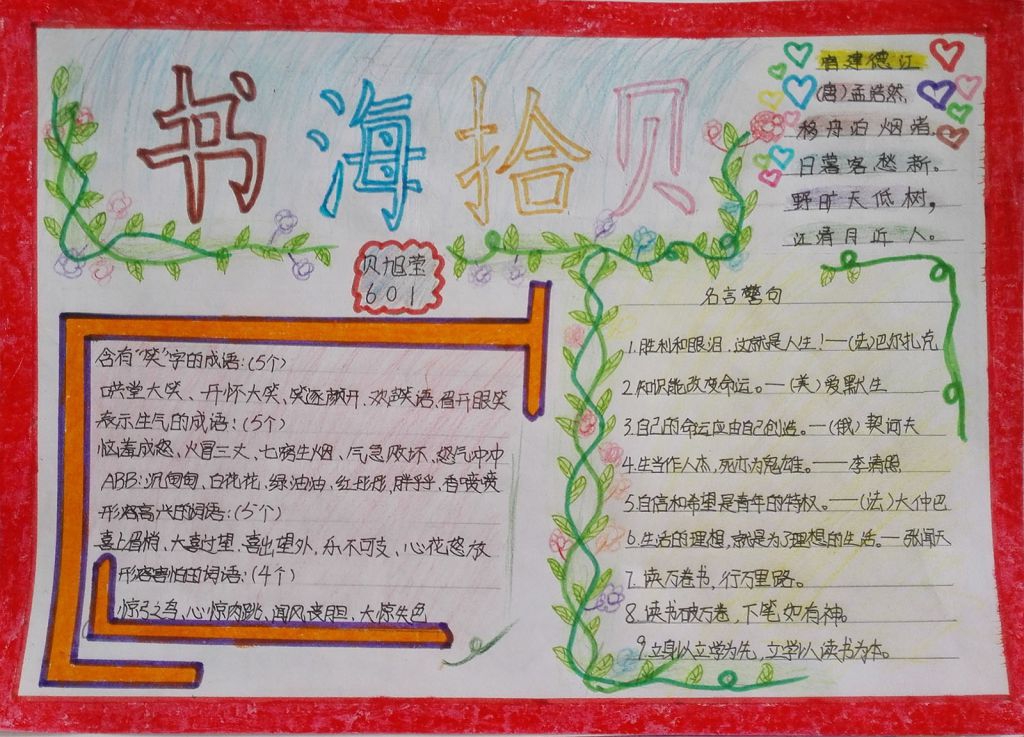 书海拾贝
宿建德江
(唐)孟浩然
移舟泊烟渚,
日暮客愁新。
野旷天低树,
江清月近人。
贝旭莹
601
含有“笑”字的成语:(5个)
哄堂大笑、开怀大笑、笑逐颜开、欢声笑语、眉开眼笑
表示生气的成语:(5个)
恼羞成怒、火冒三丈、七窍生烟、气急败坏、怒气冲冲
ABB:沉甸甸、白花花、绿油油、红彤彤、胖乎乎、香喷喷
形容高兴的词语:(5个)
喜上眉梢、大喜过望、喜出望外、乐不可支、心花怒放
形容害怕的词语:(4个)
惊弓之鸟、心惊肉跳、闻风丧胆、大惊失色
名言警句
1.胜利和眼泪,这就是人生!——(法)巴尔扎克
2.知识能改变命运。—(美)爱默生
3.自己的命运应由自己创造。—(俄)契诃夫
4.生当作人杰,死亦为鬼雄。——李清照
5.自信和希望是青年的特权。——(法)大仲巴
6.生活的理想,就是为了理想的生活。—张闻天
7.读万卷书,行万里路。
8.读书破万卷,下笔如有神。
9立身以立学为先,立学以读书为本。